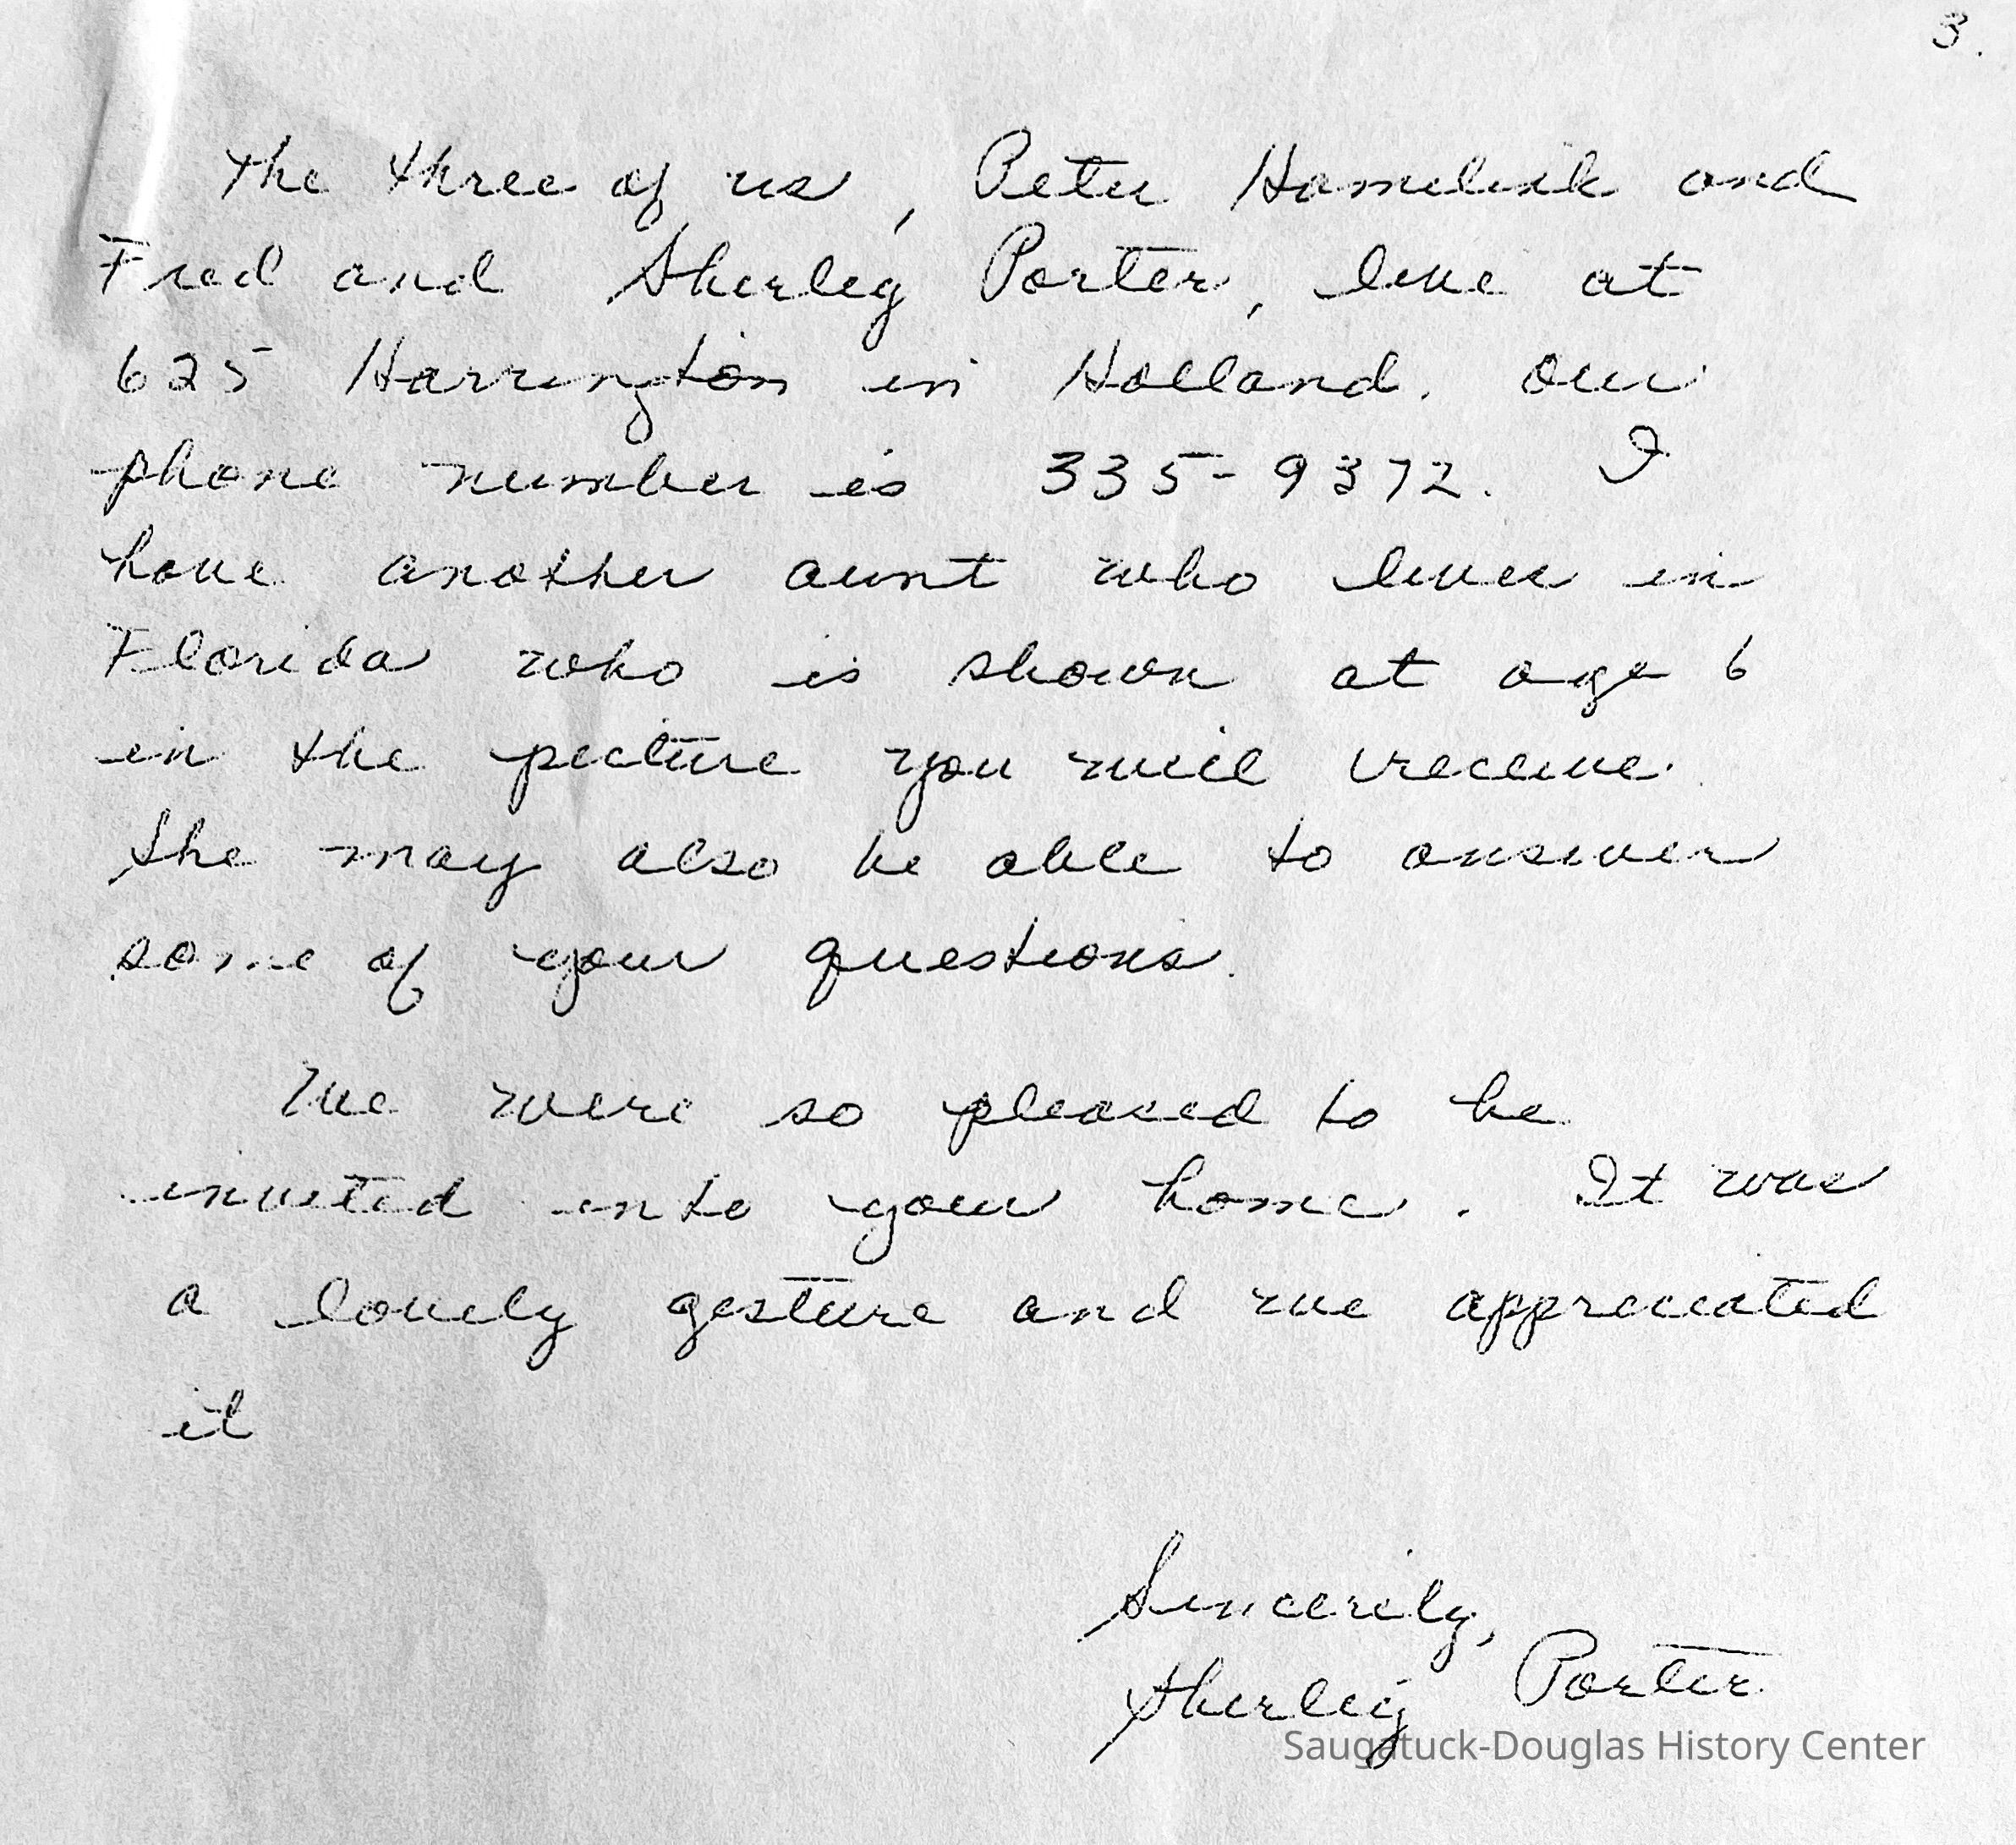 3.
The three of us, Peter Hamelink and
Fred and Shirley Porter, live at
625 Harrington in Holland. Our
phone number is 335-9372. I
have another aunt who lives in
Florida who is shown at age 6
in the picture you will receive.
She may also be able to answer
some of your questions.
We were so pleased to be
invited into your home. It was
a lovely gesture and we appreciated
it
Sincerely,
Shirley Porter
Saugatuck-Douglas History Center